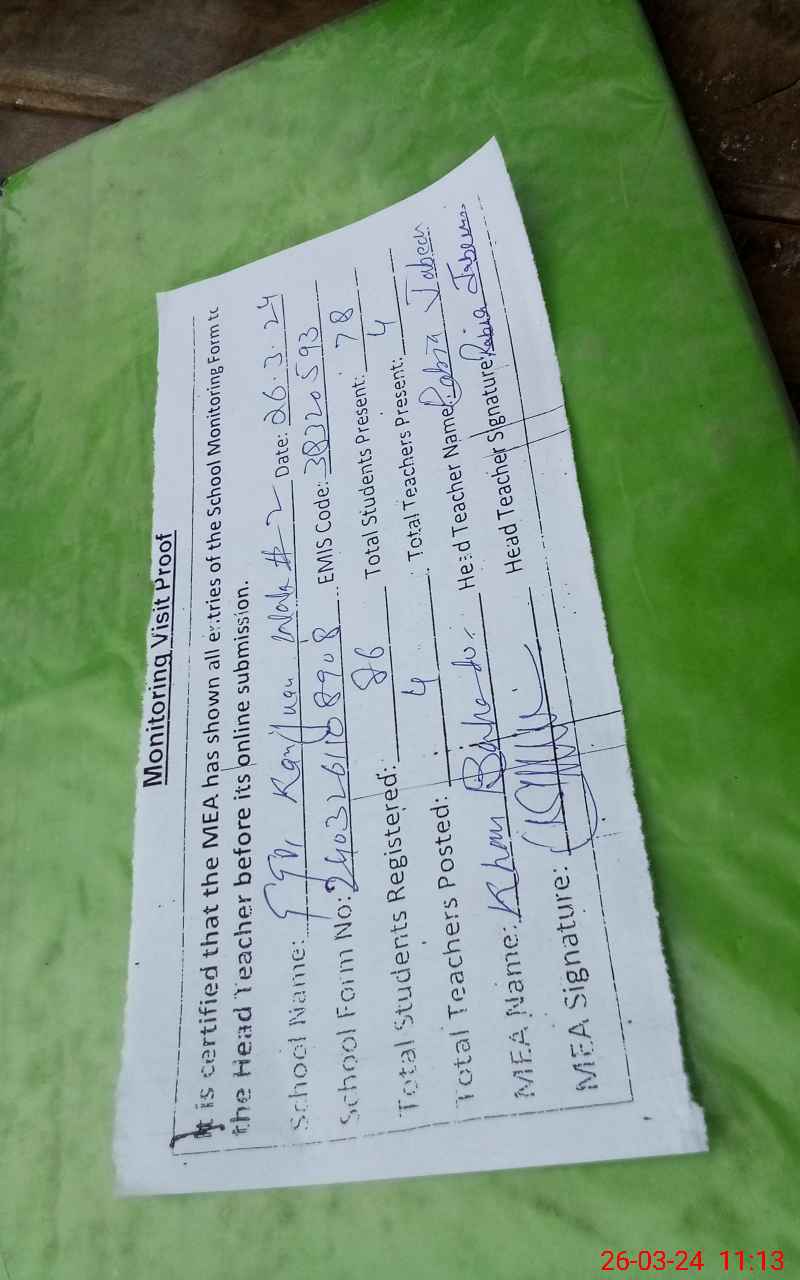 Monitoring Visit Proof
It is certified that the MEA has shown all entries of the School Monitoring Form to
the Head Teacher before its online submission.
School Name: # 2 Date: 26.3.24
School Form No: 2403261108908 EMIS Code: 38320593
Total Students Registered: 86 Total Students Present: 78
Total Teachers Posted: 4 Total Teachers Present: 4
MEA Name: Khan Bahadur Head Teacher Name: Rabia Jabeen
MEA Signature: Head Teacher Signature: Rabia Jabeen
26-03-24 11:13